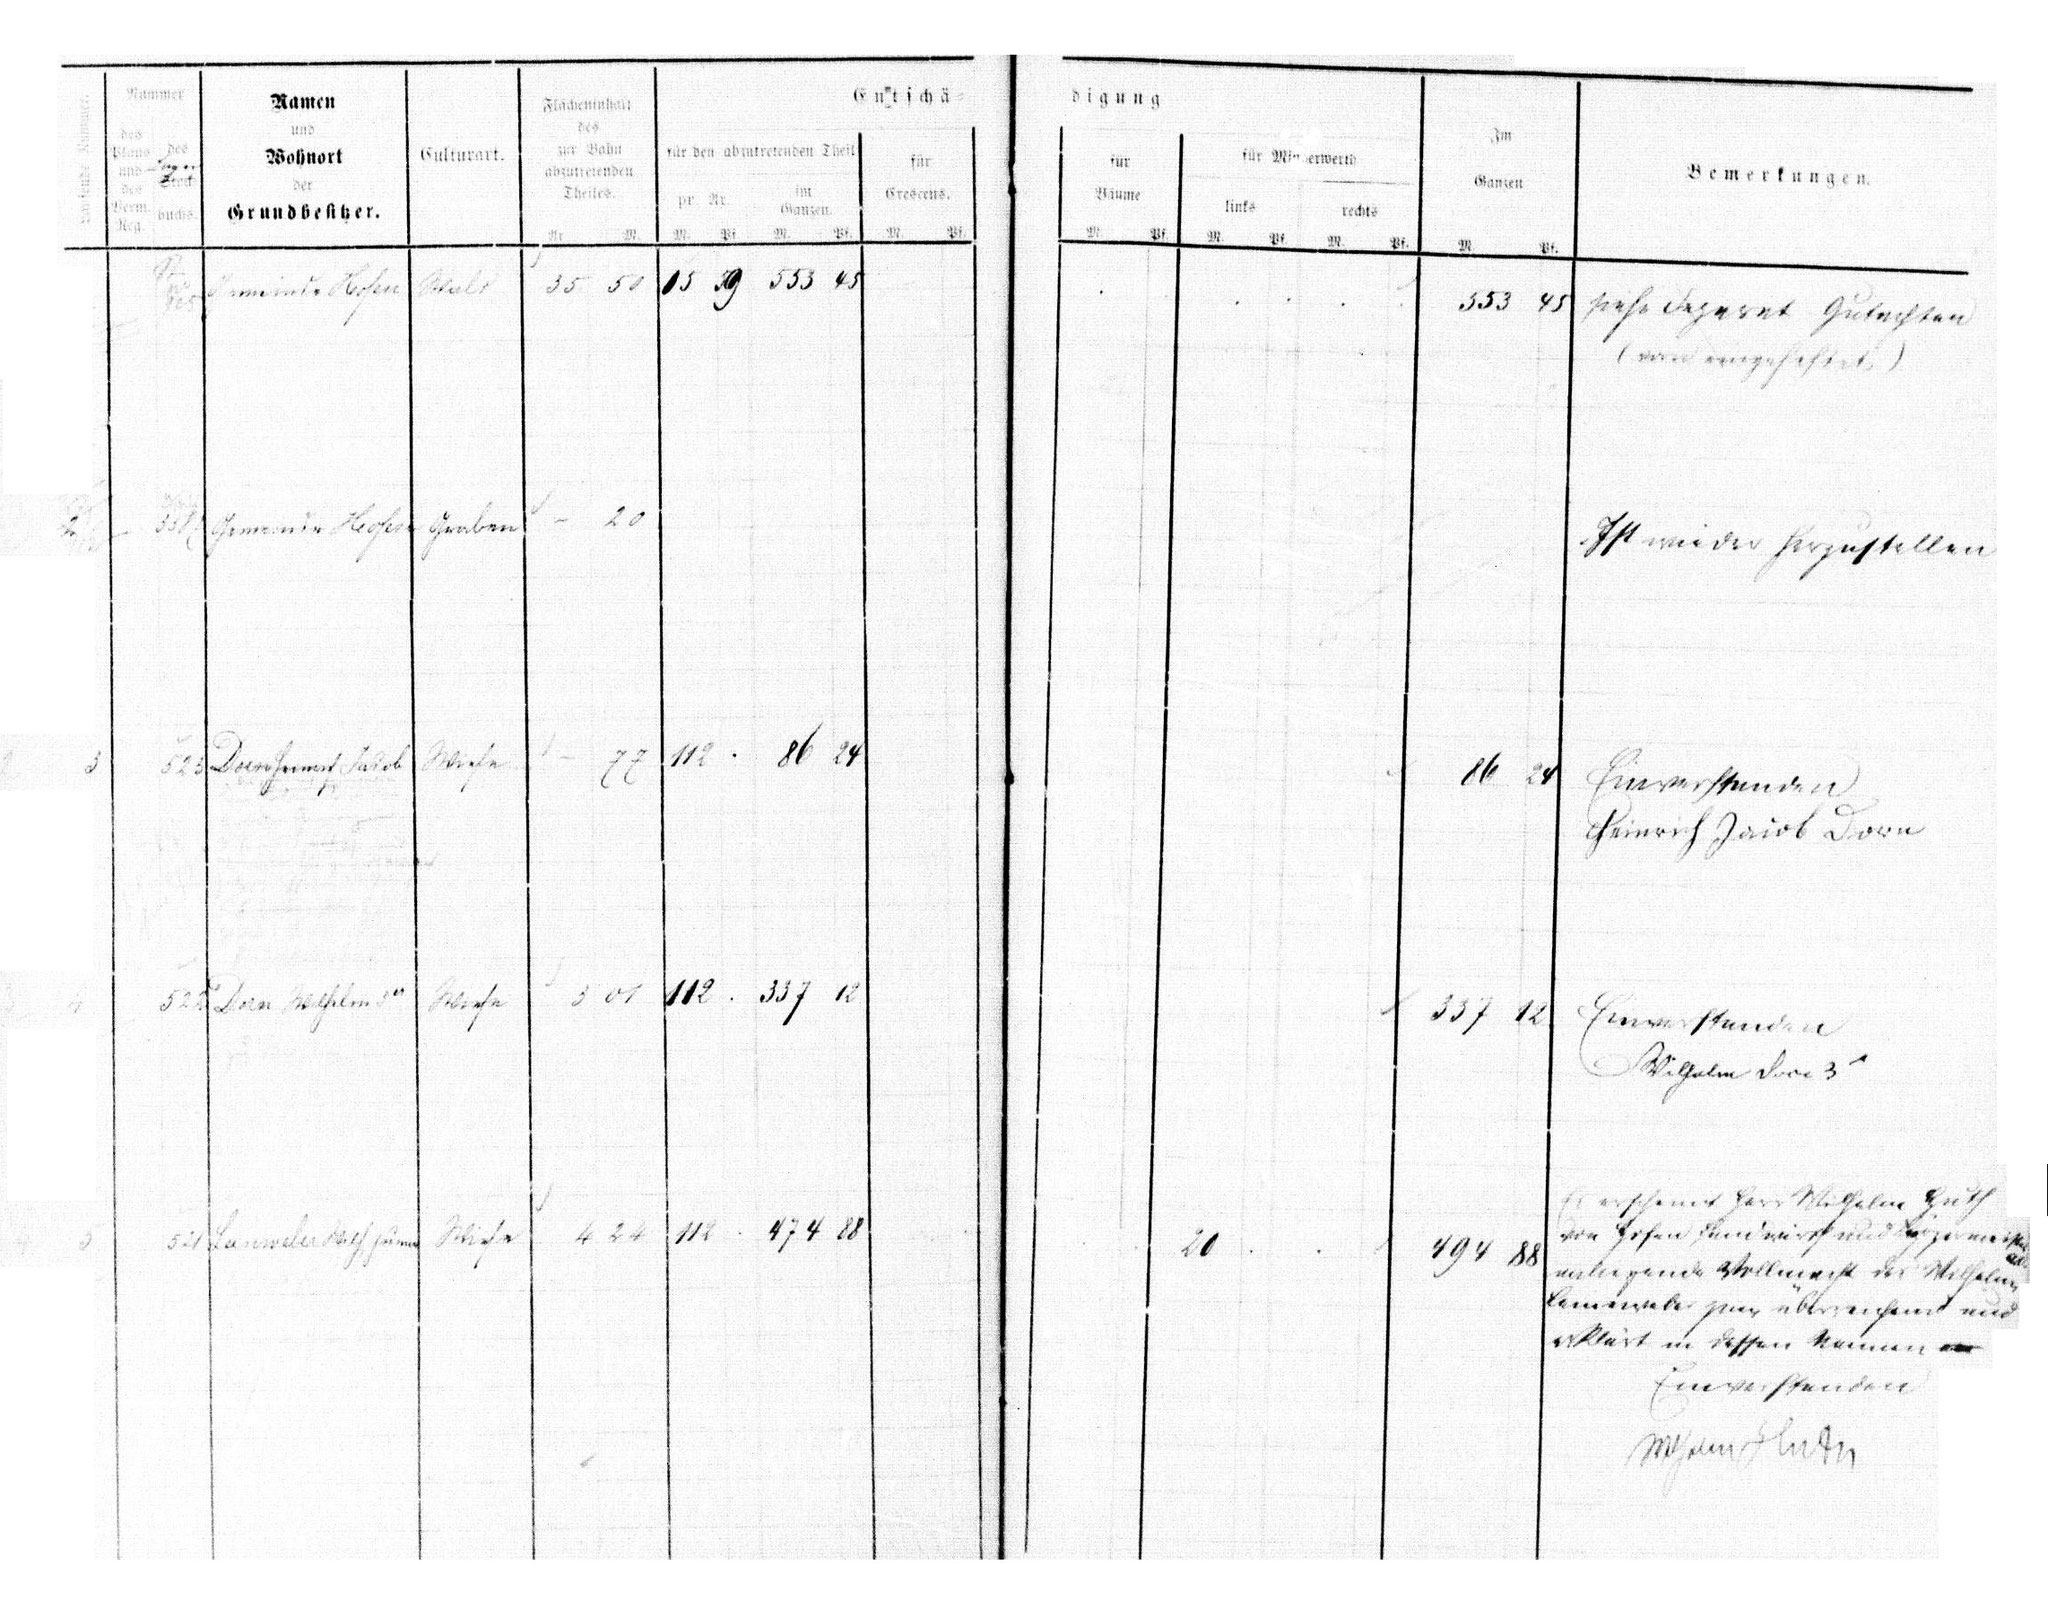 Laufende Nummer.
Nummer
des Plans und des Verm. Reg.
des Stockbuchs.
Namen
und
Wohnort
der
Grundbesitzer.
Culturart.
Flächeninhalt
des
zur Bahn
abzutretenden
Theiles.
Ar. M.
Entschä-
digung
für den abzutretenden Theil
pr. Ar.
im
Ganzen.
für
Crescens.
M. Pf. M. Pf. M. Pf.
für
Bäume
für Minderwerth
links
rechts
M. Pf. M. Pf. M. Pf.
Im
Ganzen
M. Pf.
Bemerkungen.
Gemeinde Hofen Wald 35 50 15 59 553 45 553 45 siehe separat Gutachten
2 Gemeinde Hofen Graben - 20 Ist wieder herzustellen
3 523 Dorn Heinrich Jacob Wiese - 77 112 . 86 24 86 24 Einverstanden
Heinrich Jacob Dorn
4 522 Dorn Wilhelm 3r Wiese 3 01 112 . 337 12 337 12 Einverstanden
Wilhelm Dorn 3r
5 521 Wiese 4 24 112 . 474 88 20 . 494 88
Es erscheint Herr Wilhelm Huth
von Hofen Landwirth und Bürgermeister
anliegende Vollmacht des Wilhelm
überreichend und
erklärt in dessen Namen
Einverstanden
Wilhelm Huth